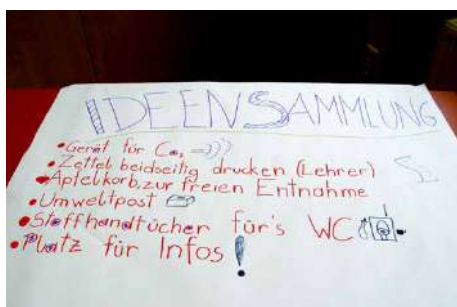 IDEENSAMMLUNG
• Gerät für Co₂
• Zettel beidseitig drucken (Lehrer)
• Apfelkorb zur freien Entnahme
• Umweltpost
• Stoffhandtücher für's WC
• Platz für Infos!